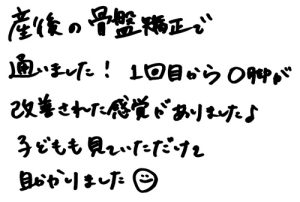 産後の骨盤矯正で
通いました！1回目からO脚が
改善された感覚がありました♪
子どもも見ていただけて
助かりました☺